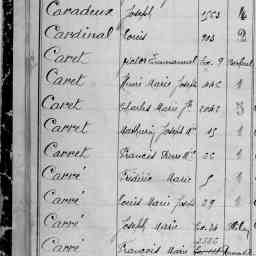 Caradeux Joseph 1563 4
Cardinal Louis 203 2
Caret Victor Emmanuel Ex. 9
Caret Henri Marie Joseph 1
Caret Charles Marie Jh 3
Carret Mathurin Joseph Mie 15 1
Carret Francois Pierre Mie 26 1
Carré Frédéric Marie 5 1
Carré Louis Marie José 29 1
Carré Joseph Marie Ex. 24
Carré François Marie